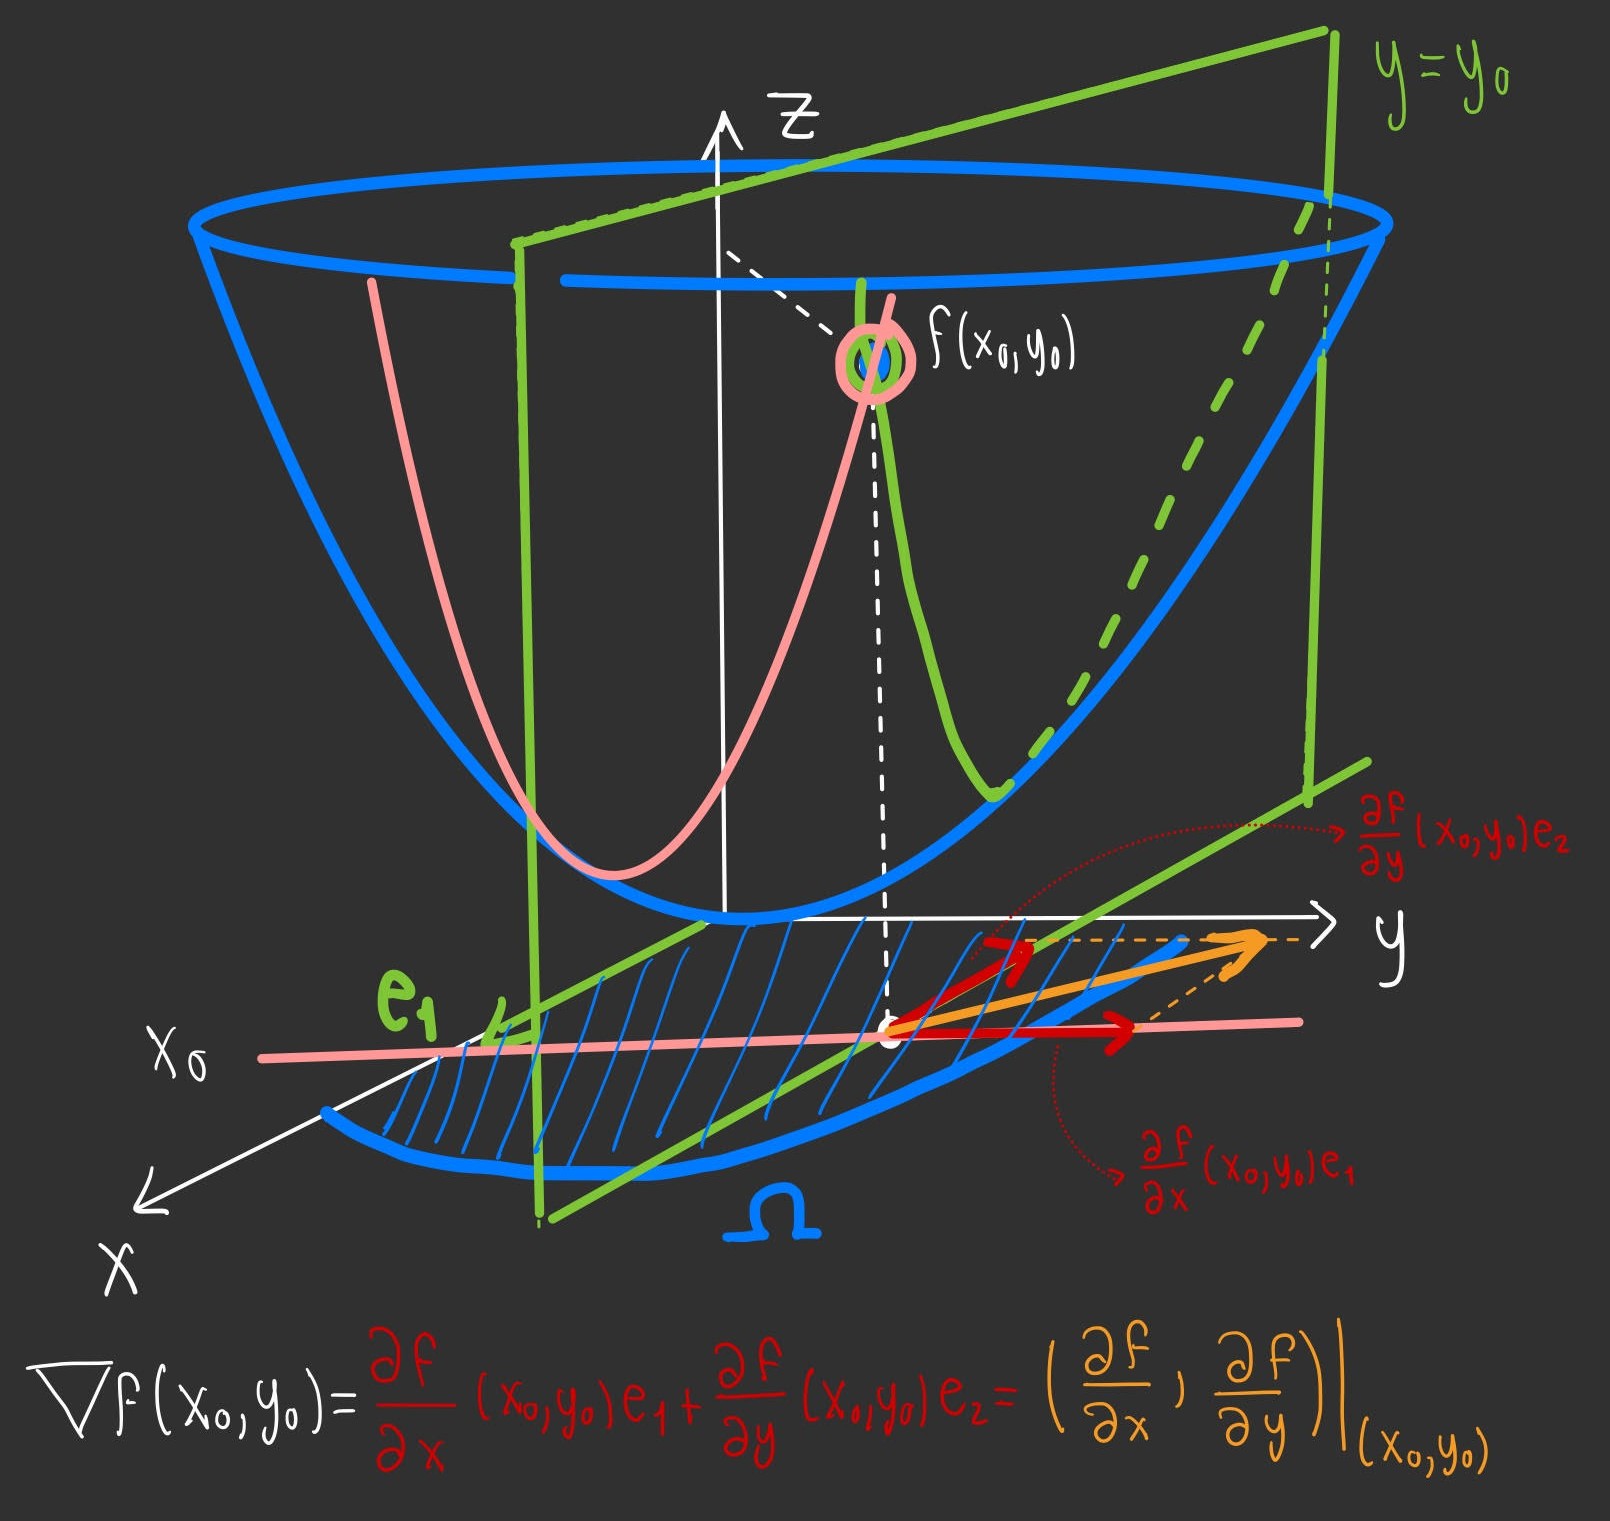 y=y₀
z
f(x₀,y₀)
∂f/∂y (x₀,y₀)e₂
y
e₁
x₀
∂f/∂x (x₀,y₀)e₁
Ω
x
∇f(x₀,y₀)= ∂f/∂x (x₀,y₀)e₁+ ∂f/∂y (x₀,y₀)e₂= (∂f/∂x, ∂f/∂y)|(x₀,y₀)